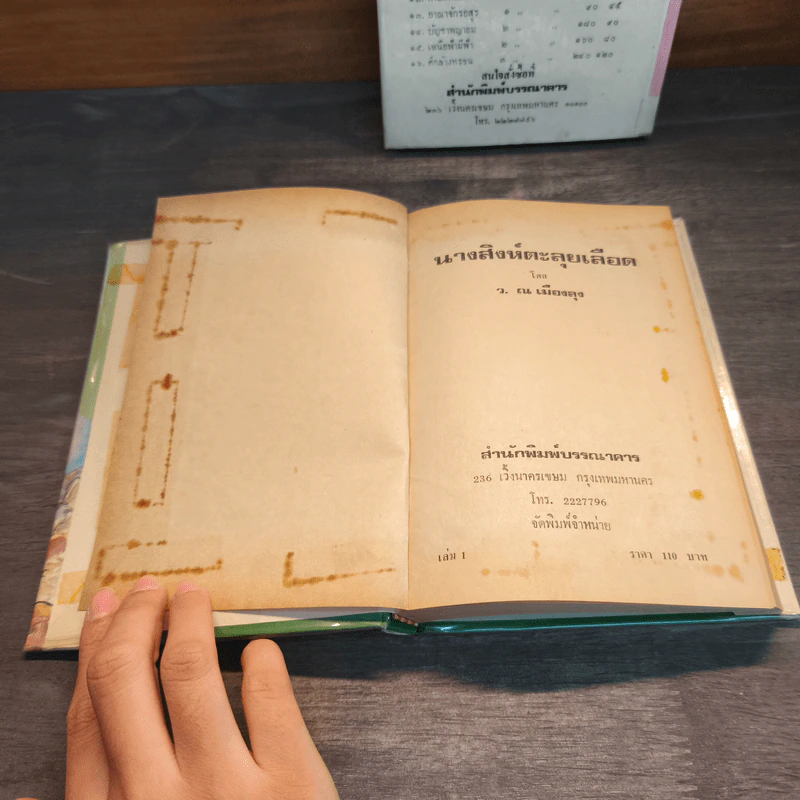 ๑๓. อาณาจักรอสุร ๑ " " ๕๐ ๔๕
๑๔. บัญชาพญายม ๒ " " ๑๘๐ ๙๐
๑๕. เหนือฟ้ามีฟ้า ๒ " " ๑๖๐ ๘๐
๑๖. ศึกล้างทรชน ๓ " " ๒๔๐ ๑๒๐
สนใจสั่งซื้อที่
สำนักพิมพ์บรรณาคาร
๒๓๖ เวิ้งนครเขษม กรุงเทพมหานคร ๑๐๑๐๐
โทร. ๒๒๒๗๗๙๖
นางสิงห์ตะลุยเลือด
โดย
ว. ณ เมืองลุง
สำนักพิมพ์บรรณาคาร
236 เวิ้งนาครเขษม กรุงเทพมหานคร
โทร. 2227796
จัดพิมพ์จำหน่าย
เล่ม 1 ราคา 110 บาท